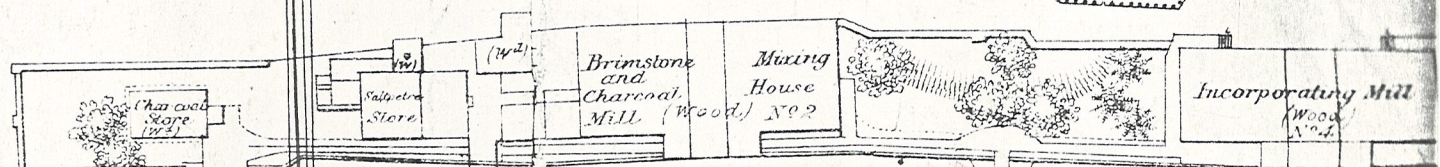 Charcoal
Store
(Wd)
(W)
Saltpetre
Store
(Wd)
Brimstone
and
Charcoal
Mill (Wood)
Mixing
House
No 2
Incorporating Mill
(Wood)
No 4